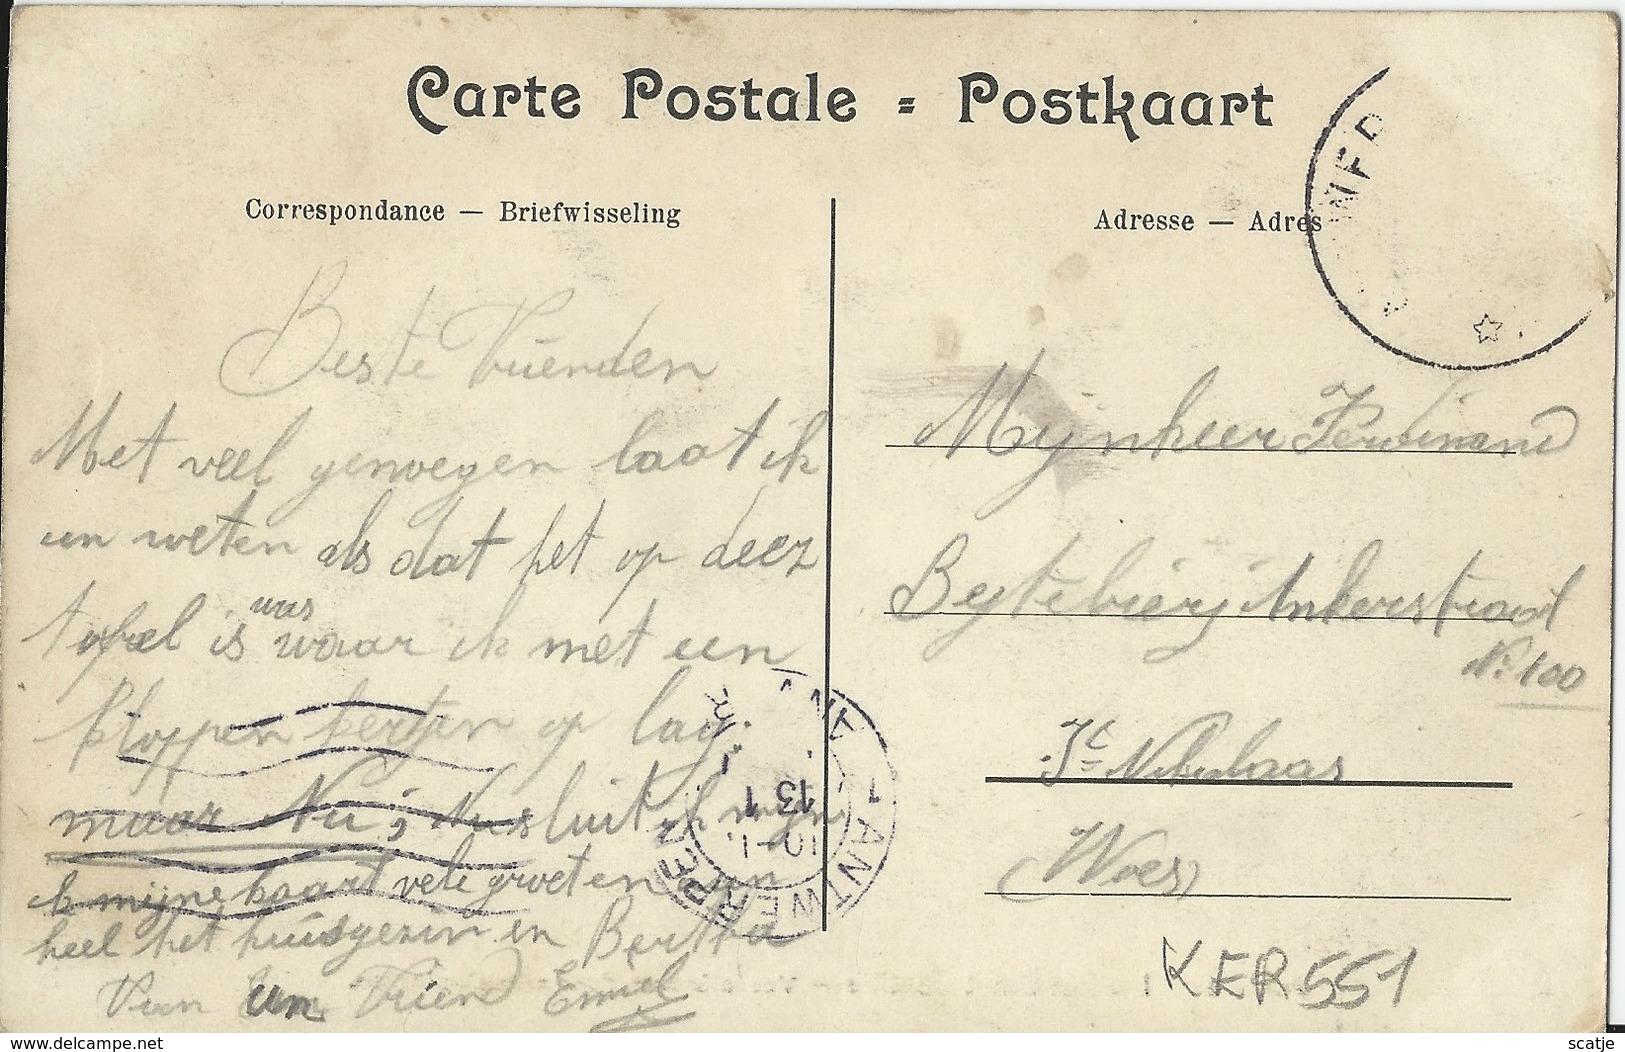 Carte Postale = Postkaart
Correspondance — Briefwisseling
Adresse — Adres
Beste Vrienden
Met veel genoegen laat ik
un weten als dat het op deez
tafel is was waar ik met een
kloppen op lag.
maar Nu; Nu sluit ik mijn
ik mijne kaart vele groeten aan
heel het huisgezin en Bertha
Van um Vriend Emiel
Mijnheer Ferdinand
Beytebierj Ankerstraat
N: 100
St Nikolaas
(Waes)
KER551
ANTWERPEN
ANT
10-1
13
1
www.delcampe.net
scatje